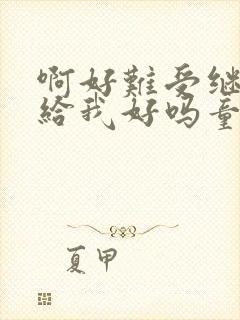 啊好難受继
給我好吗童
夏甲